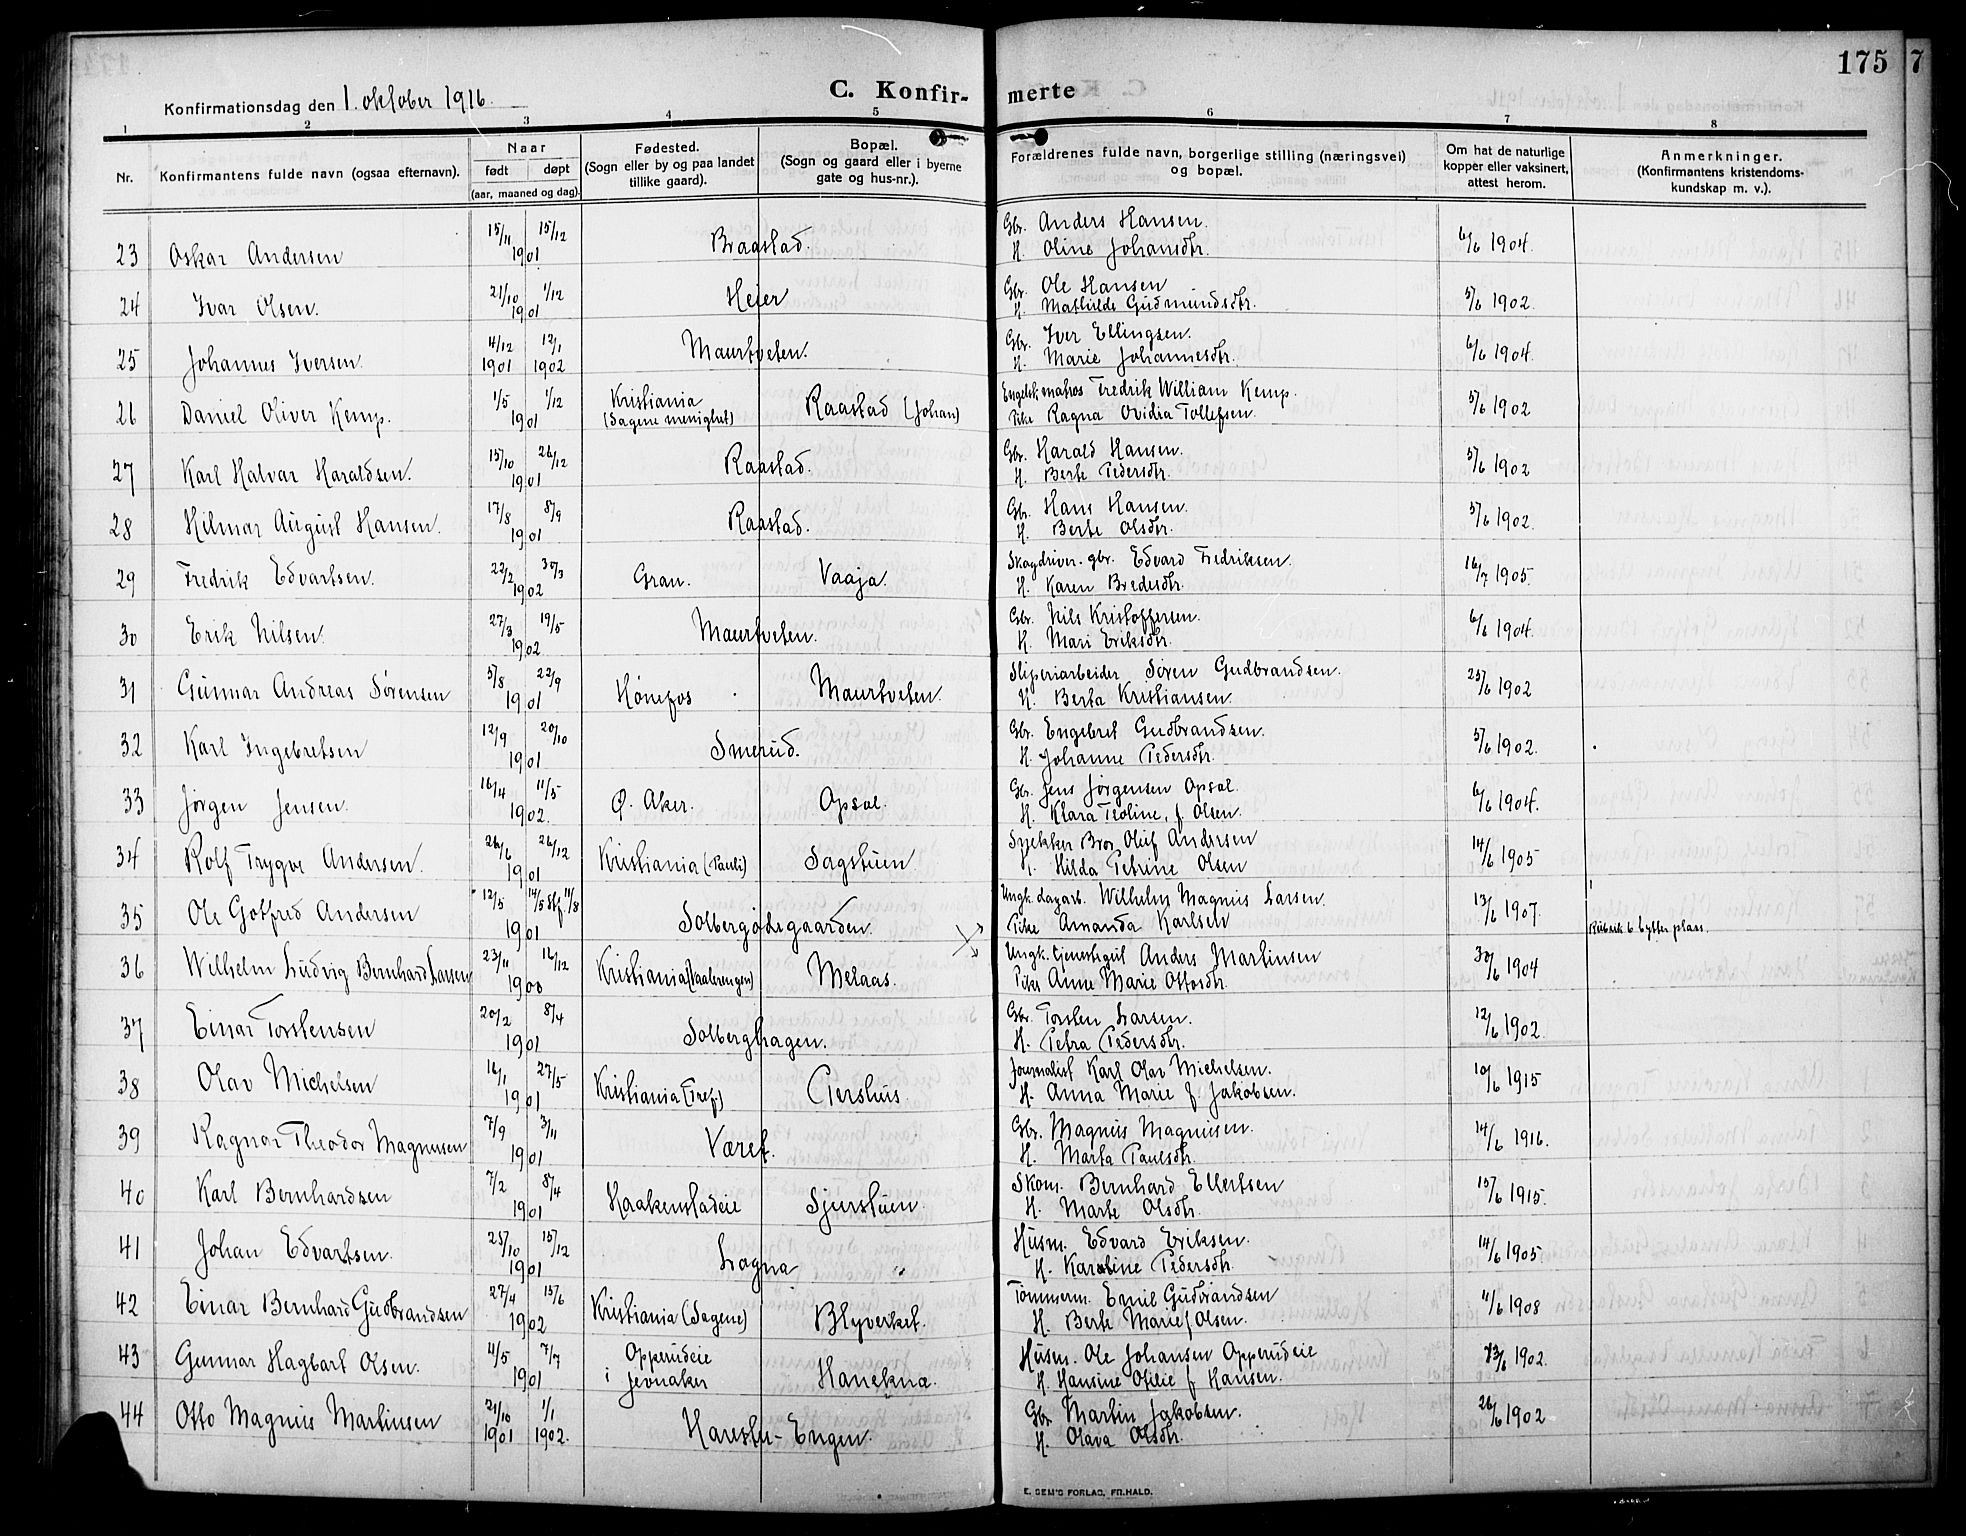 175
7
Konfirmationsdag den 1. oktober 1916.
C. Konfir-
merte
1 2 3 4 5 6 7 8
Nr.
Konfirmantens fulde navn (ogsaa efternavn).
Naar
født døpt
(aar, maaned og dag).
Fødested.
(Sogn eller by og paa landet
tillike gaard).
Bopæl.
(Sogn og gaard eller i byerne
gate og hus-nr.).
Forældrenes fulde navn, borgerlige stilling (næringsvei)
og bopæl.
Om hat de naturlige
kopper eller vaksinert,
attest herom.
Anmerkninger.
(Konfirmantens kristendoms-
kundskap m. v.).
23 Oskar Andersen 15/11 15/12 1901 Braastad. Gbr. Anders Hansen.
H. Oline Johansdtr. 6/6 1904.
24 Ivar Olsen. 21/10 1/12 1901 Heier Gbr. Ole Hansen
H. Mathilde Gudmundsdtr. 5/6 1902.
25 Johannes Iversen. 4/12 1901 12/1 1902 Maurtveten. Gbr. Iver Ellingsen.
H. Marie Johannesdtr. 6/6 1904.
26 Daniel Oliver Kemp. 1/5 1/12 1901 Kristiania (Sagene menighet) Raastad (Johan) Engelsk matros Fredrik William Kemp.
Pike Ragna Ovidia Tollefsen. 5/6 1902
27 Karl Halvar Haraldsen. 15/10 26/12 1901 Raastad. Gbr. Harald Hansen.
H. Berte Pedersdtr. 5/6 1902
28 Hilmar August Hansen. 17/8 8/9 1901 Raastad. Gbr. Hans Hansen.
H. Berte Olsdtr. 5/6 1902.
29 Fredrik Edvartsen. 22/2 30/3 1902 Gran. Vaaja. Skogdriver. gbr. Edvard Fredriksen.
H. Karen Bredesdtr. 16/7 1905.
30 Erik Nilsen. 27/3 19/5 1902 Maurtveten. Gbr. Nils Kristoffersen.
H. Mari Eriksdtr. 6/6 1904.
31 Gunnar Andreas Sørensen 5/8 22/9 1901 Hønefos Maurtveten. Sliperiarbeider Søren Gudbrandsen.
H. Berta Kristiansen. 25/6 1902
32 Karl Ingebretsen 12/9 20/10 1901 Smerud. Gbr. Engebret Gudbrandsen.
H. Johanne Pedersdtr. 5/6 1902.
33 Jørgen Jensen. 16/4 11/5 1902. Ø. Aker. Opsal. Gbr. Jens Jørgensen Opsal.
H. Klara Teoline, f Olsen. 6/6 1904.
34 Rolf Trygve Andersen. 26/6 26/12 1901 Kristiania (Pauli) Sagstuen. Snekker Bror Oluf Andersen
H. Hilda Petrine Olsen 14/6 1905
35 Ole Gotfred Andersen 12/5 14/5 Stf. 11/8 1901 Solbergødegaarden. Ungk. dagarb. Wilhelm Magnus Larsen.
Pike Amanda Karlsen 13/6 1907. Rubrik 6 bytter plass.
36 Wilhelm Ludvig Bernhard Larsen 23/11 16/12 1900 Kristiania (Vaalerengen) Melaas. Ungk. tjenestegut Anders Martinsen
Pike Anne Marie Ottosdtr. 30/6 1904
37 Einar Torstensen 20/2 8/4 1901 Solberghagen. Gbr. Torsten Larsen.
H. Petra Pedersdtr. 12/6 1902.
38 Olav Michelsen 16/1 27/5 1901 Kristiania (Tref.) Pershus Journalist Karl Olav Michelsen.
H. Anna Marie f. Jakobsen. 10/6 1915
39 Ragnar Theodor Magnusen 7/9 3/11 1901 Været. Gbr. Magnus Magnusen.
H. Marta Paulsdtr. 14/6 1916.
40 Karl Bernhardsen 7/2 8/4 1901 Haakenstadeie Sjurstuen. Skom. Bernhard Ellertsen
H. Marte Olsdtr. 15/6 1915.
41 Johan Edvartsen. 25/10 15/12 1901 Logna Husm. Edvard Eriksen.
H. Karoline Pedersdtr. 14/6 1905
42 Einar Bernhard Gudbrandsen 27/4 15/6 1902 Kristiania (Sagene) Blyverket. Tømmerm. Emil Gudbrandsen
H. Berte Marie f. Olsen. 11/6 1908
43 Gunnar Hagbart Olsen. 4/5 7/7 1901 Opperudeie i Jevnaker Hanekna. Husm. Ole Johansen Opperudeie
H. Hansine Otilie f Hansen. 23/6 1902.
44 Otto Magnus Martinsen 21/10 1901 1/1 1902. Harestu-Engen. Gbr. Martin Jakobsen.
H. Olava Olsdtr. 26/6 1902
E. SEM'S FORLAG, FR.HALD.